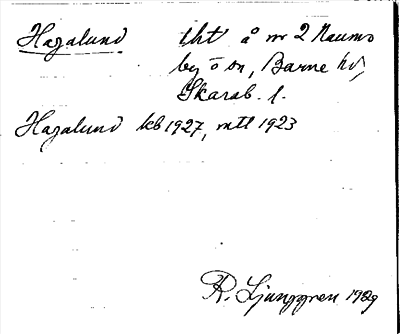 Hagalund lht å nr 2 Naums
by ö sn, Barne hd,
Skarab. l.
Hagalund kb 1927, mtl 1923
R. Ljunggren 1929